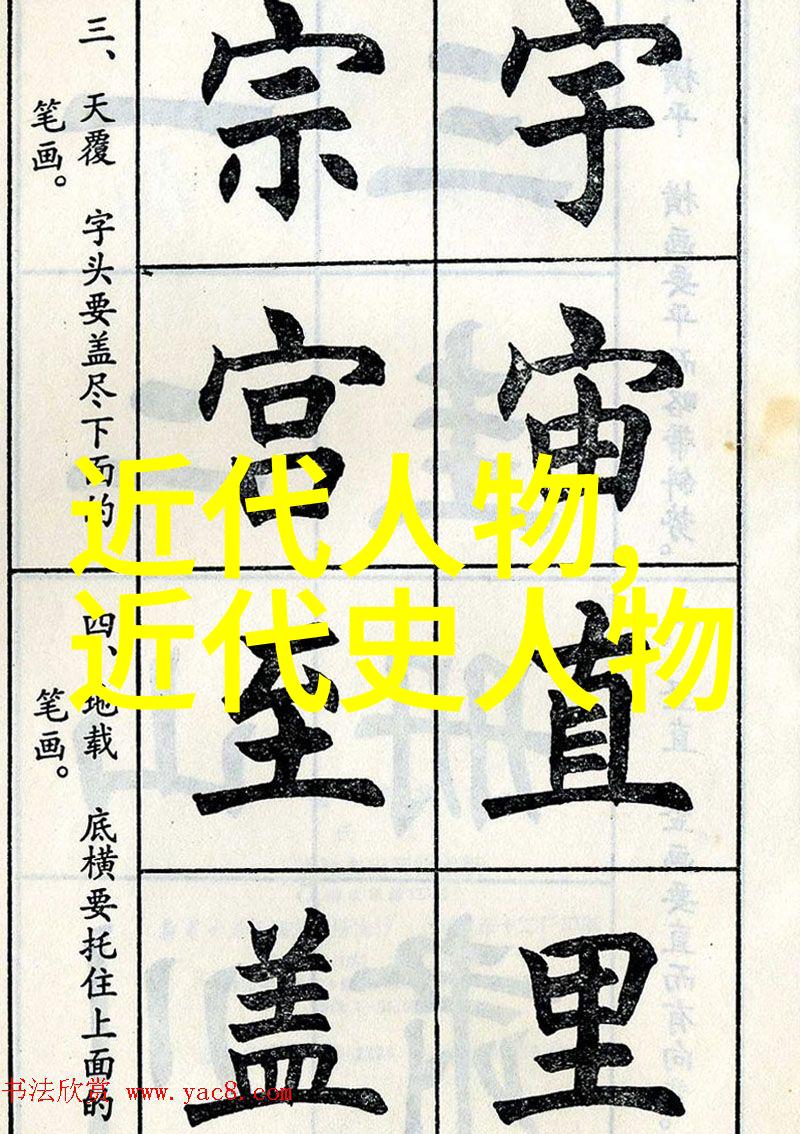 宇宙直里
宗宫至盖
三、天覆 字头要盖尽下面的
笔画。
四、地载 底横要托住上面的
笔画。
近代人物,
近代史人物
书法欣赏 www.yac8.com